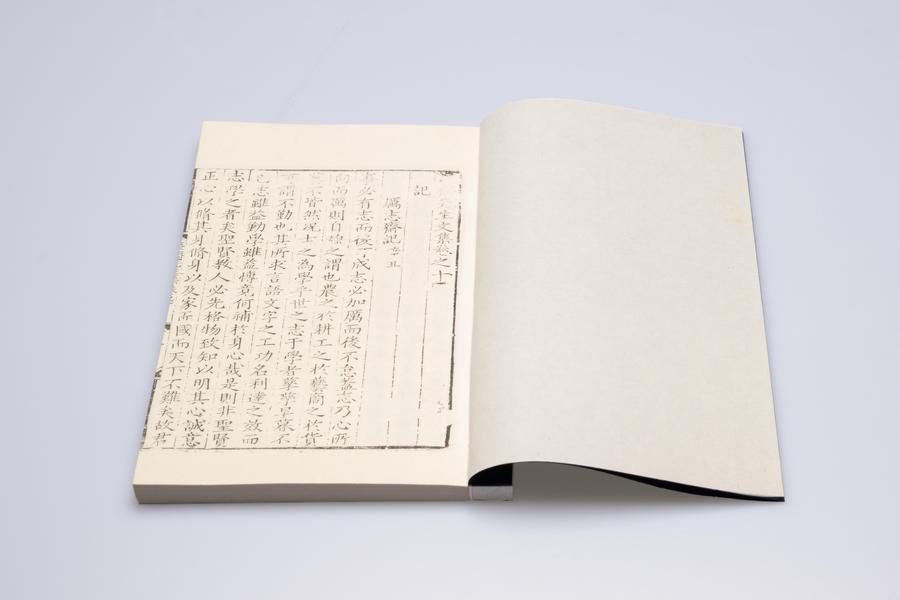 先生文集卷之十一
記
厲志齋記辛丑
事必有志而後可成志必加厲而後不怠蓋志乃心所
向而厲則自強之謂也農之於耕工之於藝商之於貨
莫不皆然况士之為學乎世之志于學者孳孳早寐不
可謂不勤也其所求言語文字之工功名利達之效而
已志雖益勤學雖益博竟何補於身心哉是則非聖賢
志學之者矣聖賢教人必先格物致知以明其心誠意
正心以脩其身脩身以及家而國而天下不難矣故君